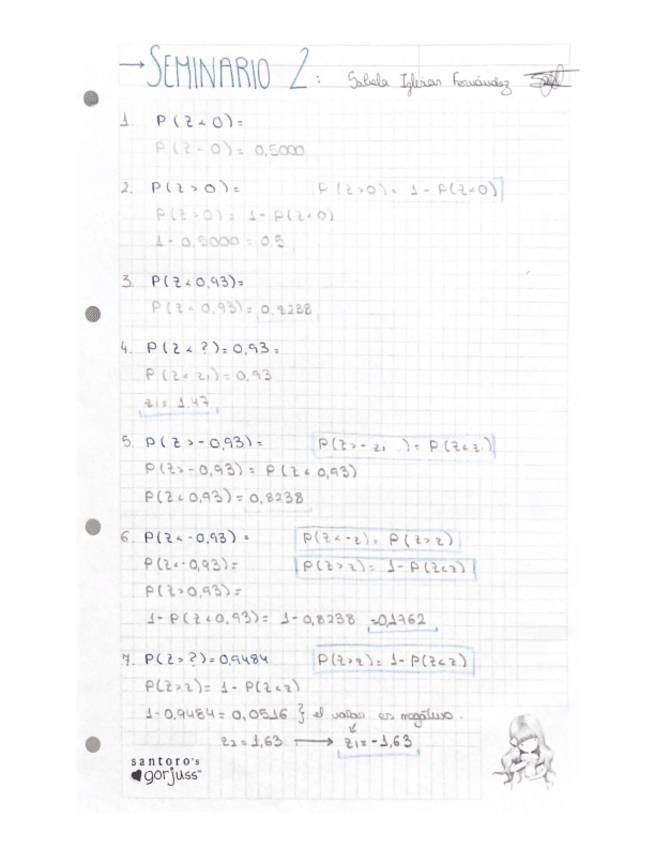 → SEMINARIO 2: Sabela Iglesias Fernández
1. P(Z<0)=
P(Z<0)= 0,5000
2. P(Z>0)= P(Z>0)= 1-P(Z<0)
P(Z>0)= 1-P(Z<0)
1-0,5000=0,5
3. P(Z<0,93)=
P(Z<0,93)= 0,8238
4. P(Z<?)=0,93=
P(Z<z1)=0,93
z1= 1,47
5. P(Z>-0,93)= P(Z>-z1)= P(Z<z1)
P(Z>-0,93)= P(Z<0,93)
P(Z<0,93)=0,8238
6. P(Z<-0,93)= P(Z<-z)= P(Z>z)
P(Z<-0,93)= P(Z>z)= 1-P(Z<z)
P(Z>0,93)=
1-P(Z<0,93)= 1-0,8238 =0,1762
7. P(Z>?)=0,9484 P(Z>z)= 1-P(Z<z)
P(Z>z)= 1-P(Z<z)
1-0,9484=0,0516 } el valor es negativo.
z2=1,63 → z1=-1,63
santoro's
gorjuss™